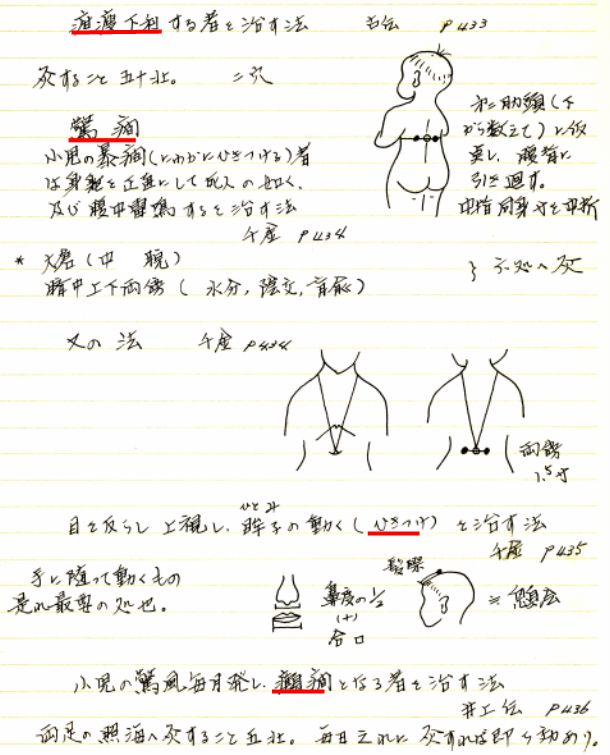 疳瘦下利する者を治す法　古伝　P433
灸すること五十壮。　二穴
第二肋頭（下
から数えて）に仮
点し、腰背に
引き返す。
中指同身寸を中折
驚癇
小児の暴癇（にわかにひきつける）者
は身躯を正直にして死人の如く、
及び腹中雷鳴すると治す法
千金　P434
* 大倉（中　脘）
臍中上下両傍（水分，陰交，肓兪）
} 六処へ灸
又の法　千金　P434
両傍
1.5寸
目を反らし上視し、眸子の動く（ひきつけ）を治す法
ひとみ
千金　P435
手に随って動くもの
是れ最要の処也。
鼻度の1/2
(+)
合口
髪際
≒ 顖会
小児の驚風毎月発し、癲癇となる者を治す法
井上伝　P436
両足の照海へ灸すること五壮。毎日これに灸すれば即ち効あり。